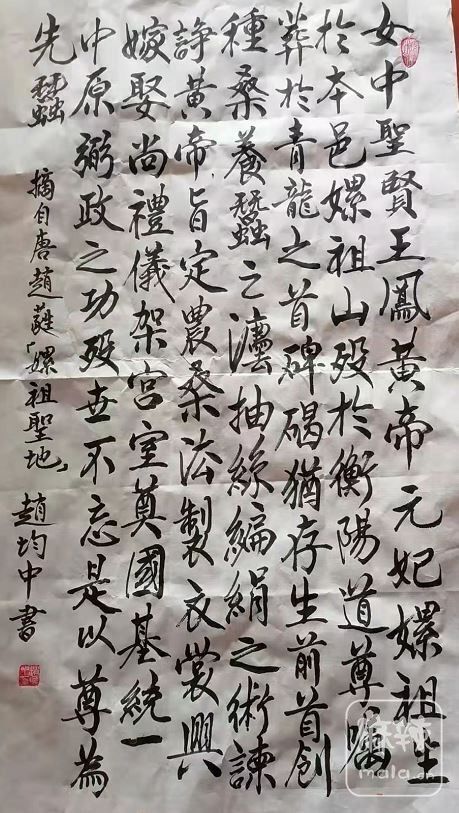 女中聖賢王鳳黃帝元妃嫘祖生
於本邑嫘祖山殁於衡陽道尊囑
葬於青龍之首碑碣猶存生前首創
種桑養蠶之灋抽絲編絹之術諫
諍黃帝旨定農桑法製衣裳興
嫁娶尚禮儀架宮室奠國基統一
中原弼政之功殁世不忘是以尊為
先蠶 摘自唐趙蕤「嫘祖聖地」趙均中書
麻辣
mala.cn